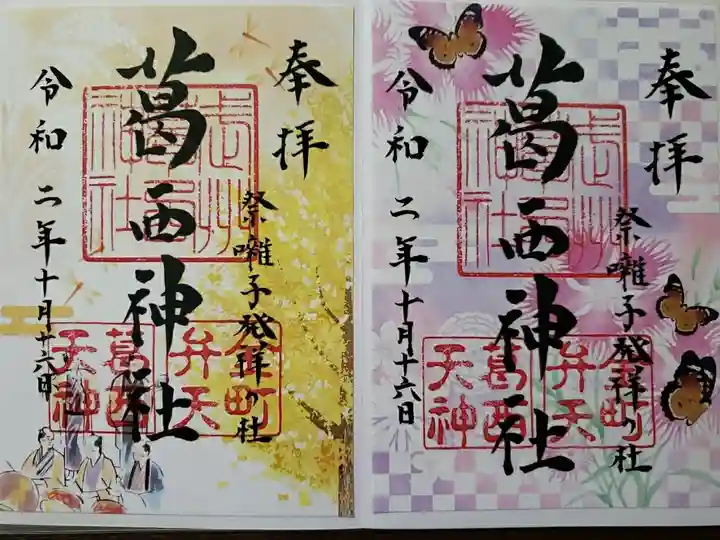 奉拝
祭囃子発祥の社
葛西神社
令和二年十月十六日
金町
弁天
葛西
天神
奉拝
祭囃子発祥の社
葛西神社
令和二年十月十六日
金町
弁天
葛西
天神